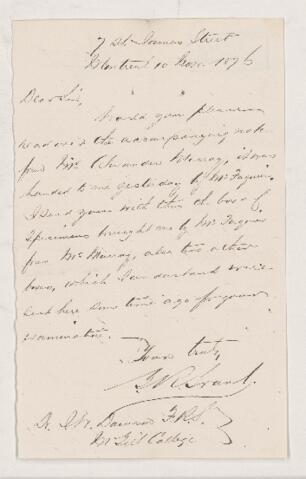 Street
Montreal 10 Novr 1876
Dear Sir,
Would you please
read over the accompanying note
from Mr. Alexander Murray, it was
handed to me yesterday by Mr
I send you with this a box of
specimens brought me by Mr
from Mr. Murray, also two other
boxes, which I understand were
sent here some time ago for your
examination.
Yours truly,
Grant.
Dr. J. W. Dawson F.R.S.
McGill College